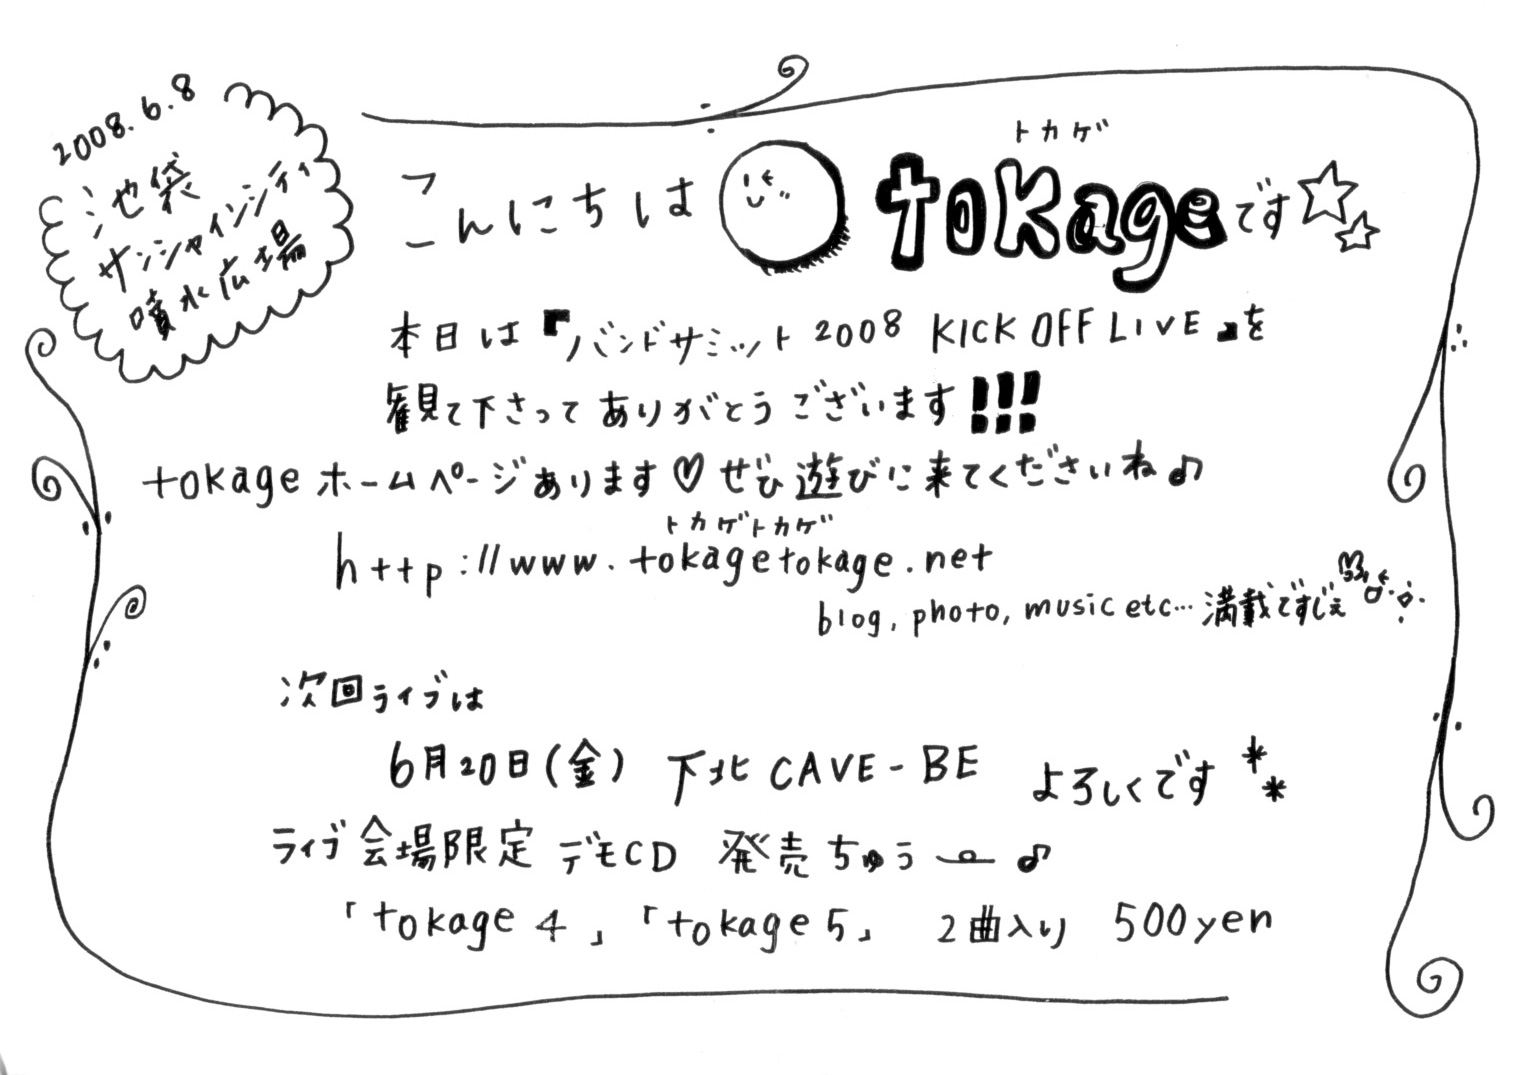 2008.6.8
池袋
サンシャインシティ
噴水広場
トカゲ
こんにちは tokageです☆☆
本日は『バンドサミット2008 KICK OFF LIVE』を
観て下さってありがとうございます!!!
tokageホームページあります♡ぜひ遊びに来てくださいね♪
トカゲトカゲ
http://www.tokagetokage.net
blog, photo, music etc…満載ですじぇ
次回ライブは
6月20日(金) 下北 CAVE-BE よろしくです**
ライブ会場限定 デモCD 発売ちゅう ♪
「tokage 4」「tokage 5」 2曲入り 500yen